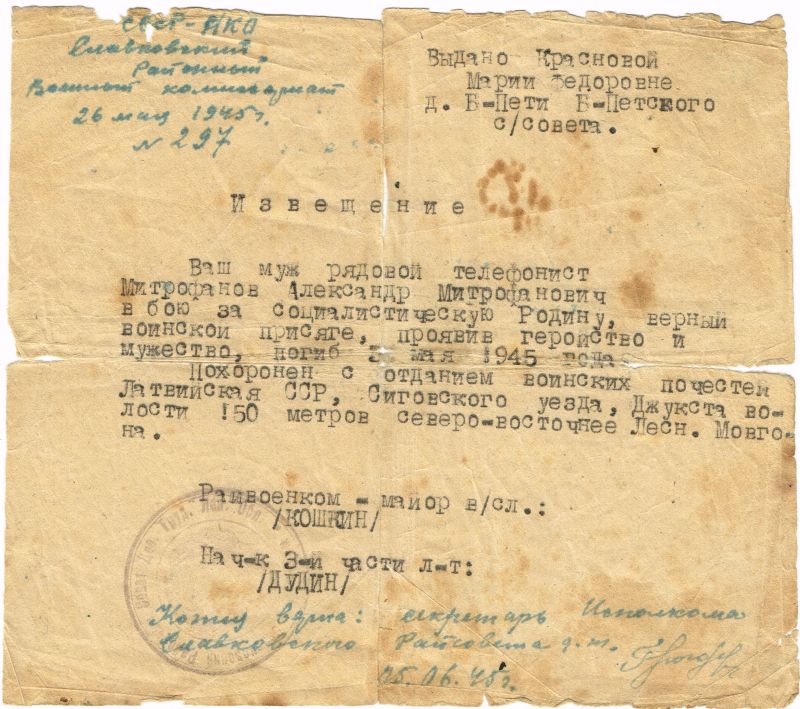 СССР-НКО
Славковский
Районный
Военный комиссариат
26 мая 1945г.
N 297
Выдано Красновой
Марии Федоровне
д. Б-Пети Б-Петского
с/совета.
Извещение
Ваш муж рядовой телефонист
Митрофанов Александр Митрофанович
в бою за социалистическую Родину, верный
воинской присяге, проявив геройство и
мужество, погиб мая 1945 года.
Похоронен с отданием воинских почестей
Латвийская ССР, Сиговского уезда, Джукста во-
лости !50 метров северо-восточнее Лесн. Мовго-
на.
Райвоенком - майор в/сл.:
/КОШКИН/
Нач-к 3-й части л-т:
/ДУДИН/
Копия верна: секретарь Исполкома
Славковского Райсовета д.т.
05.06.45г.